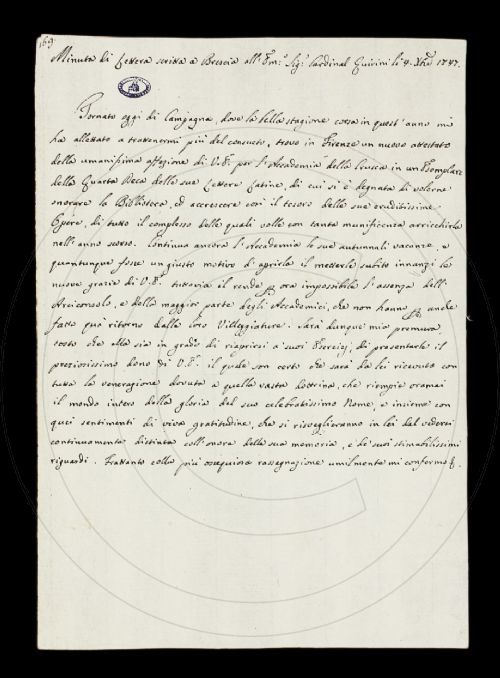 169
Minuta di Lettera scritta a Brescia all' Em.o Sig.r Cardinal Quirini li 9. Xbre 1747.
Tornato oggi di Campagna, dove la bella stagione corsa in quest' anno mi
ha allettato a trattenermi più del consueto, trovo in Firenze un nuovo attestato
della umanissima affezione di V. E. per l' Accademia della Crusca in un Esemplare
della Quarta Deca delle sue Lettere Latine, di cui si è degnata di volerne
onorare la Biblioteca, ed accrescere con il tesoro delle sue eruditissime
Opere, di tutto il complesso delle quali volle con tanta munificenza arricchirla
nell' anno scorso. Continua ancora l' Accademia le sue autunnali vacanze, e
quantunque fosse un giusto motivo d' aprirla il metterle subito innanzi le
nuove grazie di V. E. tuttavia il rende p ora impossibile l' assenza dell'
Arciconsolo, e della maggior parte degli Accademici, che non hanno p anche
fatto quà ritorno dalle loro Villeggiature. Sarà dunque mia premura,
tosto che ella sia in grado di riaprirsi a' suoi Esercizj, di presentarle il
preziosissimo dono di V. E. il quale son certo che sarà da lei ricevuto con
tutta la venerazione dovuta a quella vasta dottrina, che riempie oramai
il mondo intero della gloria del suo celebratissimo Nome, e insieme con
quei sentimenti di viva gratitudine, che si risveglieranno in lei dal vedersi
continuamente distinta coll' onore della sua memoria, e de' suoi stimabilissimi
riguardi. Frattanto colla più ossequiosa rassegnazione umilmente mi confermo